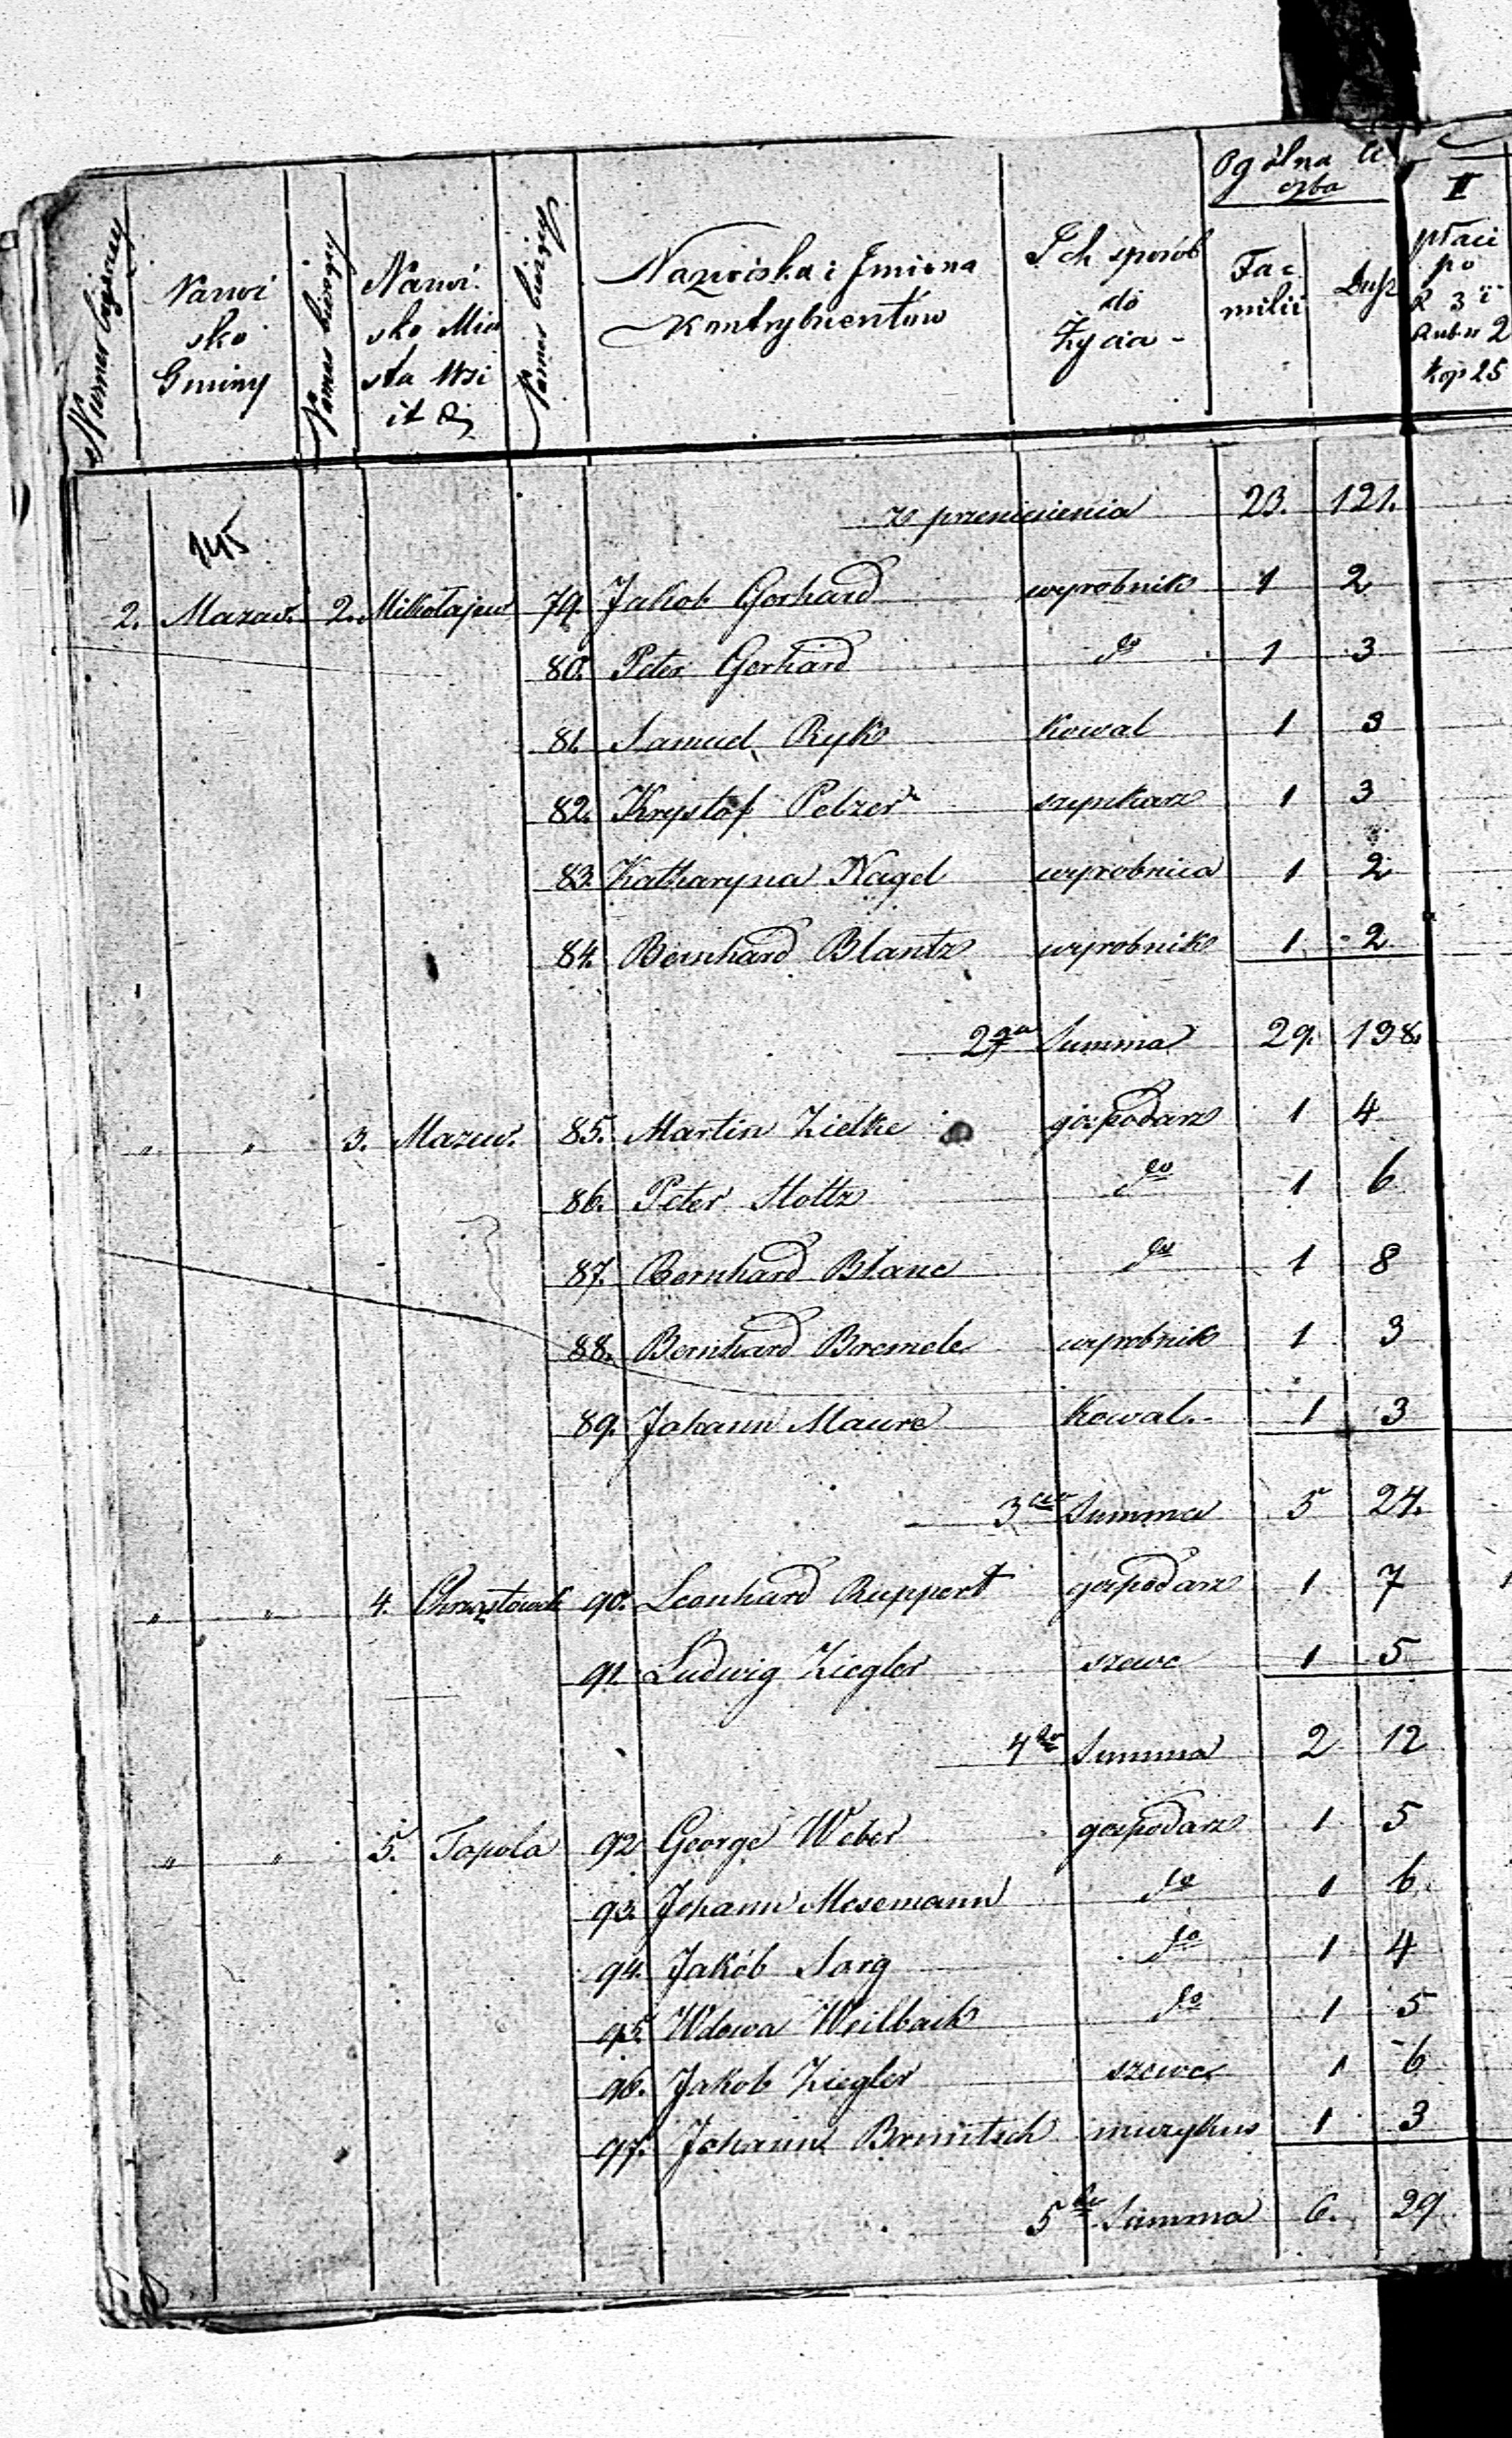 Numer bieżący
Nazwi
sko
Gminy
Numer bieżący
Nazwi
sko Mia
sta Wsi
it d.
Numer bieżący
Nazwiska i Jmiona
Kontrybuentów
Jch sposób
do
życia -
Ogólna li
czba
Fa
milii
Dusz
II
płaci
po
Rubli 2
kop 25
z przeniesienia 23. 121.
145
2. Mazew. 2. Mikołajew 79. Jakob Gerhard wyrobnik 1 2
80. Peter Gerhard do 1 3
81. Samuel Ryk kowal 1 3
82. Krystof Pelzer szynkarz 1 3
83. Katharyna Nagel wyrobnica 1 2
84. Bernhard Blantz wyrobnik 1 2
2ga Summa 29. 138.
" " 3. Mazew. 85. Martin Zielke gospodarz 1 4
86. Peter Stoltz do 1 6
87. Bernhard Blanc do 1 8
88. Bernhard Bremele wyrobnik 1 3
89. Johann Maure Kowal. 1 3
3cia Summa 5 24.
" " 4. Chrząstówek 90. Leonhard Ruppert gospodarz 1 7
91. Ludwig Ziegler szewc 1 5
4ta Summa 2 12
" " 5. Topola 92 George Weber gospodarz 1 5
93. Johann Mosemann do 1 6
94. Jakób Sarg do 1 4
95. Wdowa Weilbach do 1 5
96. Jakob Ziegler szewc 1 6
97. Johann Bronitsch muzykus 1 3
5ta Summa 6. 29